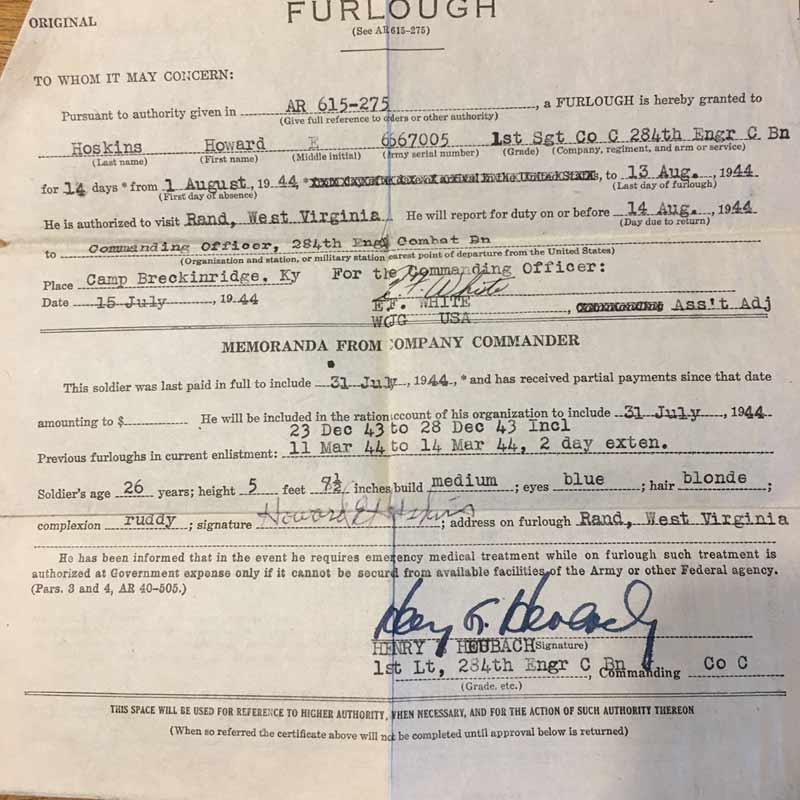 FURLOUGH
ORIGINAL
(See AR 615-275)
TO WHOM IT MAY CONCERN:
Pursuant to authority given in AR 615-275, a FURLOUGH is hereby granted to
(Give full reference to orders or other authority)
Hoskins Howard E 6667005 1st Sgt Co C 284th Engr C Bn
(Last name) (First name) (Middle initial) (Army serial number) (Grade) (Company, regiment, and arm or service)
for 14 days * from 1 August, 1944, * to 13 Aug., 1944
(First day of absence) (Last day of furlough)
He is authorized to visit Rand, West Virginia He will report for duty on or before 14 Aug., 1944
(Day due to return)
to Commanding Officer, 284th Engr Combat Bn
(Organization and station, or military station nearest point of departure from the United States)
Place Camp Breckinridge, Ky For the Commanding Officer:
E F. White
Date 15 July, 1944
E.F. WHITE, Ass't Adj
WOJG USA
MEMORANDA FROM COMPANY COMMANDER
This soldier was last paid in full to include 31 July, 1944, * and has received partial payments since that date
amounting to $ He will be included in the ration account of his organization to include 31 July, 1944
23 Dec 43 to 28 Dec 43 Incl
Previous furloughs in current enlistment: 11 Mar 44 to 14 Mar 44, 2 day exten.
Soldier's age 26 years; height 5 feet 7½ inches build medium; eyes blue; hair blonde;
complexion ruddy; signature Howard E Hoskins; address on furlough Rand, West Virginia
He has been informed that in the event he requires emergency medical treatment while on furlough such treatment is
authorized at Government expense only if it cannot be secured from available facilities of the Army or other Federal agency.
(Pars. 3 and 4, AR 40-505.)
HENRY HEUBACH (Signature)
1st Lt, 284th Engr C Bn, Commanding Co C
(Grade, etc.)
THIS SPACE WILL BE USED FOR REFERENCE TO HIGHER AUTHORITY, WHEN NECESSARY, AND FOR THE ACTION OF SUCH AUTHORITY THEREON
(When so referred the certificate above will not be completed until approval below is returned)